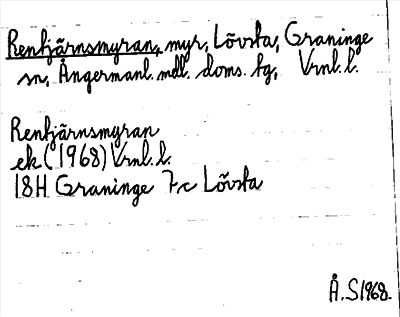 Rentjärnsmyran, myr, Lövsta, Graninge
sn, Ångermanl. mell. doms. tg, Vrnl. l.
Rentjärnsmyran
ek (1968) Vrnl. l.
18H Graninge 7c Lövsta
Å.S 1968.